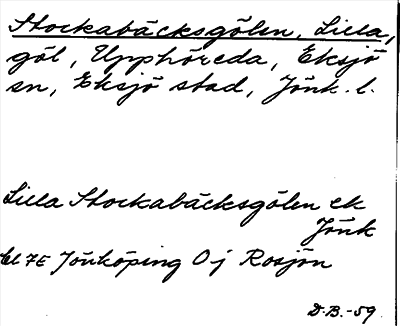 Stockabäcksgölen, Lilla,
göl, Upphöreda, Eksjö
sn, Eksjö stad, Jönk. l.
Lilla Stockabäcksgölen ek
Jönk
bl 7E Jönköping Oj Rosjön
D.B.-59